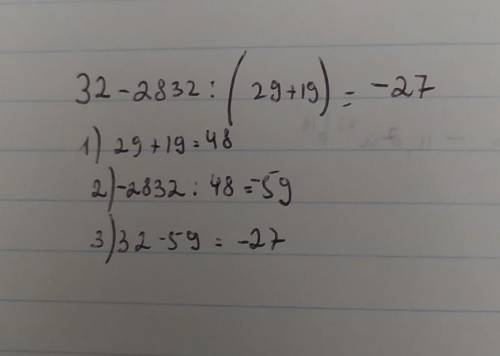 32-2832:(29+19)=-27
1) 29+19=48
2) -2832:48=-59
3) 32-59=-27